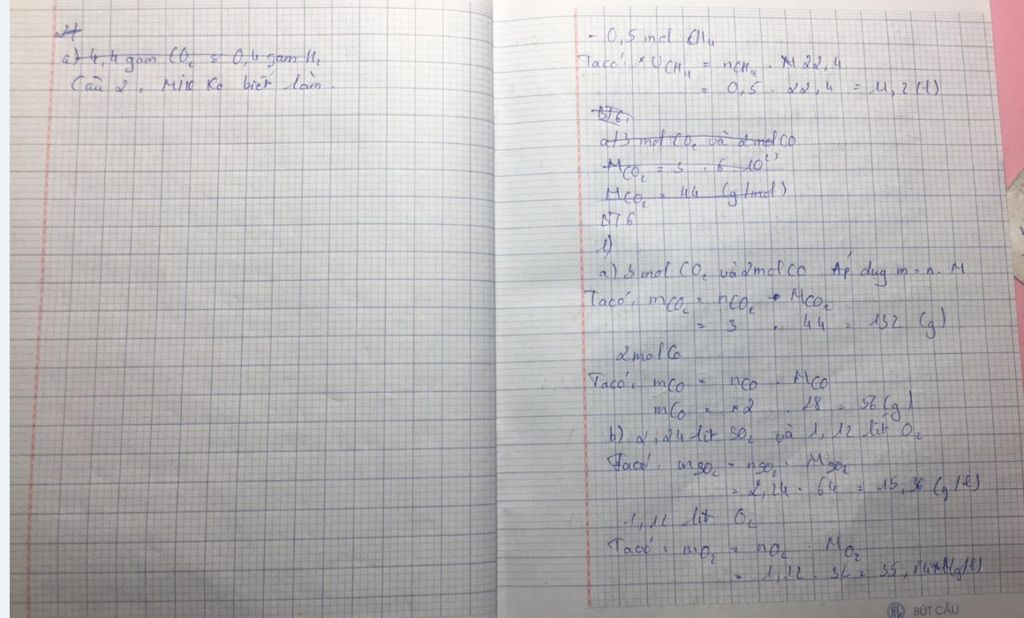 2)
a) 4,4 gam CO2 = 0,4 gam H2
Câu 2, Mik ko biết làm.
- 0,5 mol CH4
Ta có: VCH4 = nCH4 . 22,4
= 0,5 . 22,4 = 11,2 (l)
BT6:
a) 3 mol CO2 và 2 mol CO
MCO2 = 3 . 6 10²³
MCO2 = 44 (g/mol)
BT6
1)
a) 3 mol CO2 và 2 mol CO Áp dụg m = n. M
Ta có: mCO2 = nCO2 . MCO2
= 3 . 44 = 132 (g)
2 mol CO
Ta có: mCO = nCO . MCO
mCO = 2 . 28 = 56 (g)
b) 2,24 lít SO2 và 1,12 lít O2
Ta có: mSO2 = nSO2 . MSO2
= 2,24 . 64 = 15,36 (g/l)
1,12 lít O2
Ta có: mO2 = nO2 . MO2
= 1,12 . 32 = 35, (g/l)
HL BÚT CÂU